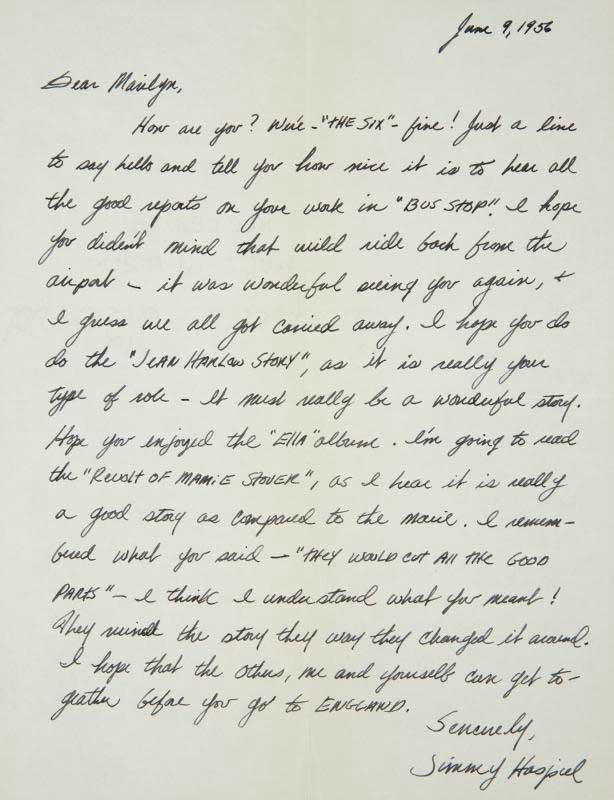 June 9, 1956
Dear Marilyn,
How are you? We're - "THE SIX" - fine! Just a line
to say hello and tell you how nice it is to hear all
the good reports on your work in "BUS STOP". I hope
you didn't mind that wild ride back from the
airport - it was wonderful seeing you again, +
I guess we all got carried away. I hope you do
do the "JEAN HARLOW STORY", as it is really your
type of role - It must really be a wonderful story.
Hope you enjoyed the "Ella" album. I'm going to read
the "REVOLT OF MAMIE STOVER", as I hear it is really
a good story as compared to the movie. I remem-
bered what you said - "THEY WOULD CUT All THE GOOD
PARTS" - I think I understand what you meant!
They ruined the story they way they changed it around.
I hope that the others, me and yourself can get to-
geather before you go to ENGLAND.
Sencerely,
Jimmy Haspiel